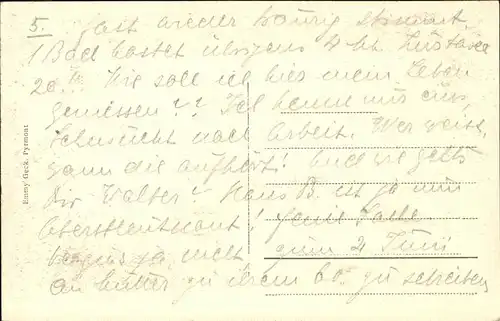 5. fast wieder traurig stimmt.
1 Bad kostet übrigens 4 M, Lustbarke
20 Pf. Wie soll ich hier mein Leben
geniessen?? Ich kenne nur eins,
Sehnsucht nach Arbeit. Wer weiss,
wann die aufhört! Und wie geht's
Dir Walter? Hans B. ist ja nun
Oberstleutnant!
Vergiss ja nicht zum 2 Juni
an Mutter zu ihrem 60. zu schreiben
Emmy Geck. Pyrmont